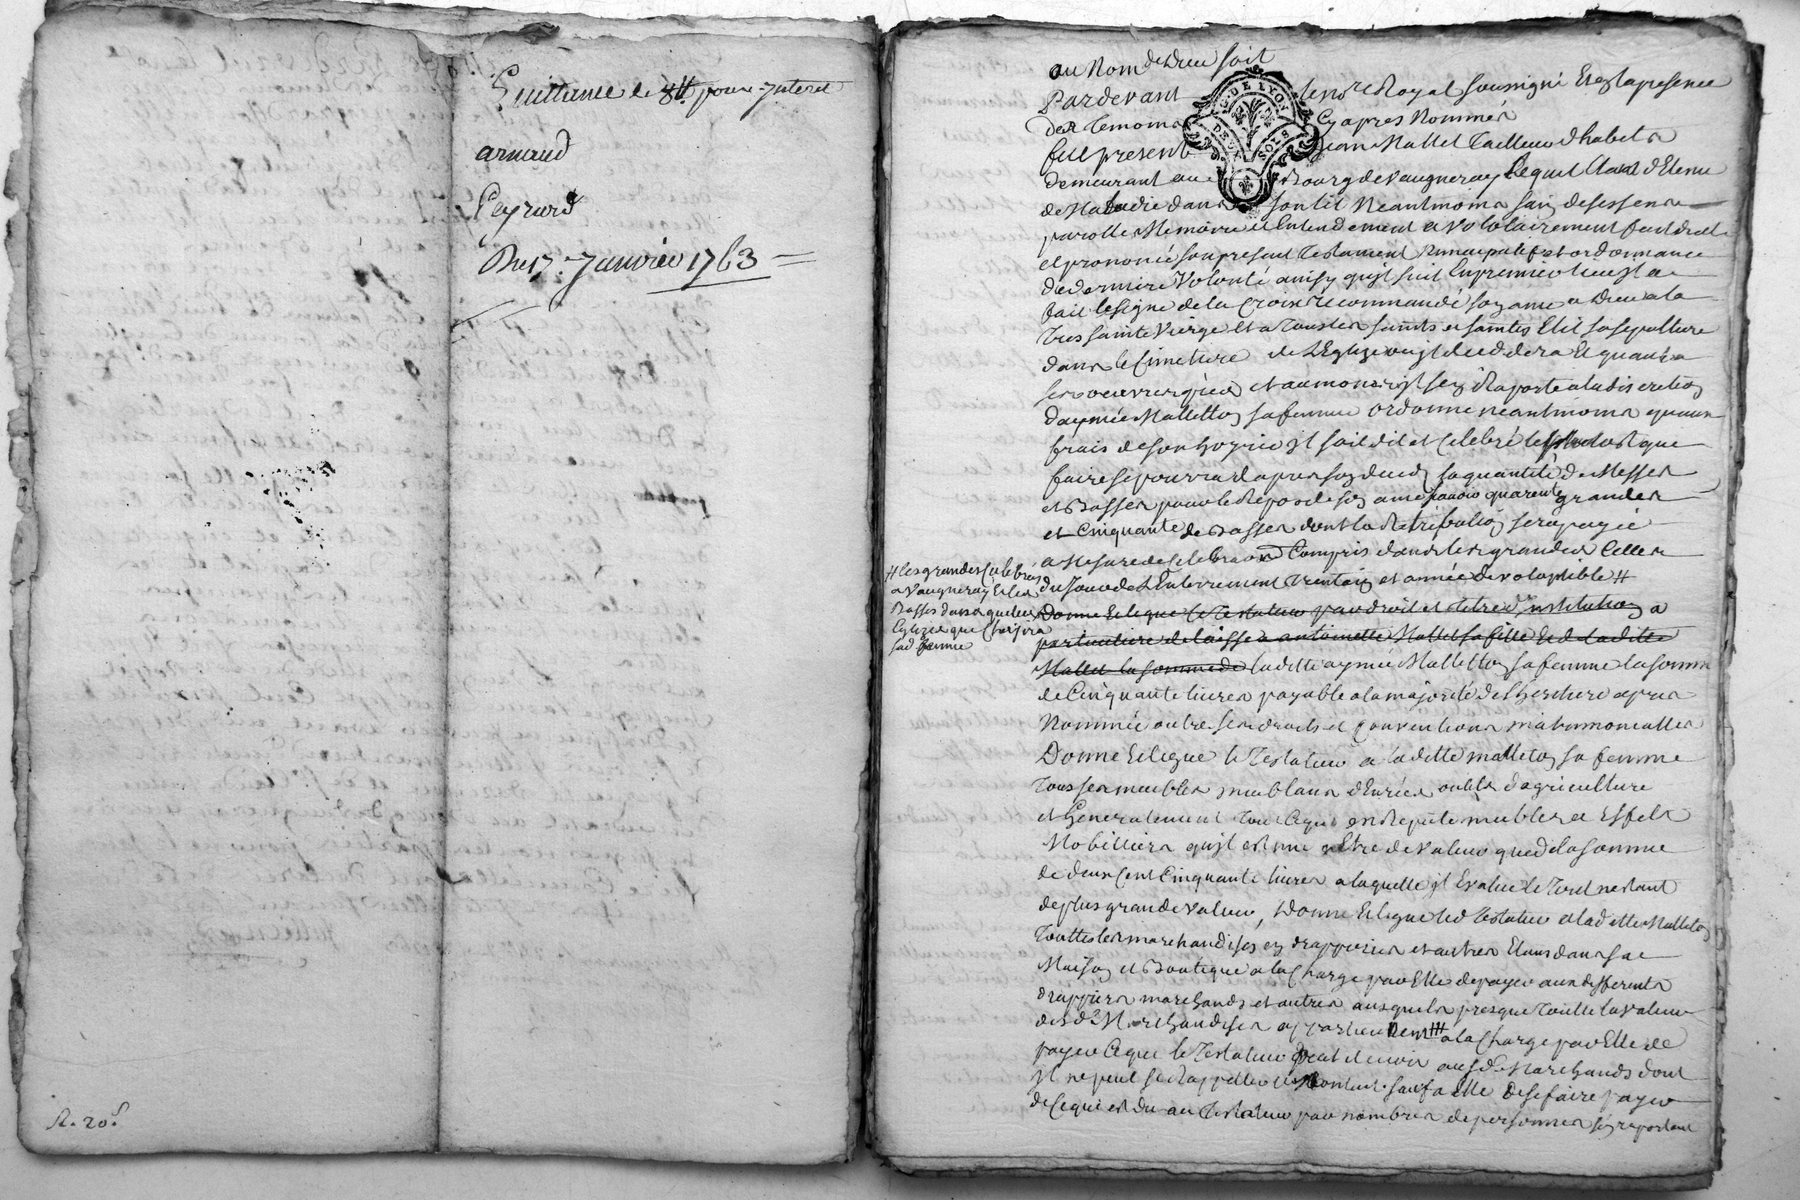 Quittance de 8tt pour Interet
arnaud
Peyrard
Du 17e Janvier 1763
R. 20s
au Nom de Dieu soit
Pardevant le no.re Royal soussigné Et En la presence
Des Temoins Cy apres Nommés
fut present Jean Mallet Tailleur d'habits
demeurant au Bourg de Vaugneray Lequel Etant detenu
de Maladie dans son lit Neantmoins sain de ses sens
parolle Memoire et Entendement a Volotairement fait dicté
et prononcé son present Testament Nuncupatif et ordonnance
de derniere Volonté ainsy qu'jl suit En premier lieu jl a
fait le signe de la Croix recommandé son ame a Dieu a la
Tres sainte Vierge Et a Tous les saints et saintes Elit sa sepulture
dans le Cimetiere de L'Eglise ou jl decedera Et quant a
ses oeuvres pies et aumones jl s'en Raporte a la discretion
d'aymée Malleton sa femme ordonne neantmoins qu'aux
frais de son hoyrie jl soit dit et Celebré le plutost que
faire se pourra d'apres son deced la quantité de Messes
et Basses pour le Repos de son ame scavoir quarente grandes
et Cinquante de Basses dont la Retribution sera payée
a Mesure de Celebraon Compris dans les grandes Celles
# les grandes Celebrées
a Vaugneray Et les
Basses dans quelles
Eglises que Choisira
sad. femme
du Jour de L'Enterrement Trentain et année de voluptible #
Donne Et legue le Testateur par droit et titre d'institution
particuliere delaisse a antoinette Mallet sa fille Et de ladite
Mallet la somme de laditte aymée Malleton sa femme la somme
de Cinquante livres payable a la majorité de l'heritiere apres
Nommée outre ses droits et Conventions matrimonialles
Donne Et legue le Testateur a laditte malleton sa femme
Tous ses meubles meublans denrées outils d'agriculture
et Generalement Tout Ce qui est Reputé meubles et Effets
Mobilliers qu'jl estime n'Etre de Valeur que de la somme
de deux Cent Cinquante livres a laquelle jl Evalue le Tout n'estant
de plus grande Valeur, Donne Et legue led. Testateur a ladette Malleton
Touttes les marchandises en drapperies et autres Etant dans sa
Maison et Boutique a la Charge par Elle de payer aux differents
drappiers marchands et autres ausquels presque Toutte la Valeur
desd.es Marchandises appartiennent a la Charge par Elle de
payer Ce que le Testateur peut devoir ausd. Marchands dont
jl ne peut se Rappeller le Montant sauf a Elle De se faire payer
de Ce qui est du au Testateur par nombre de personnes s'en raportant
G. DE LYON
DEUX SOLS